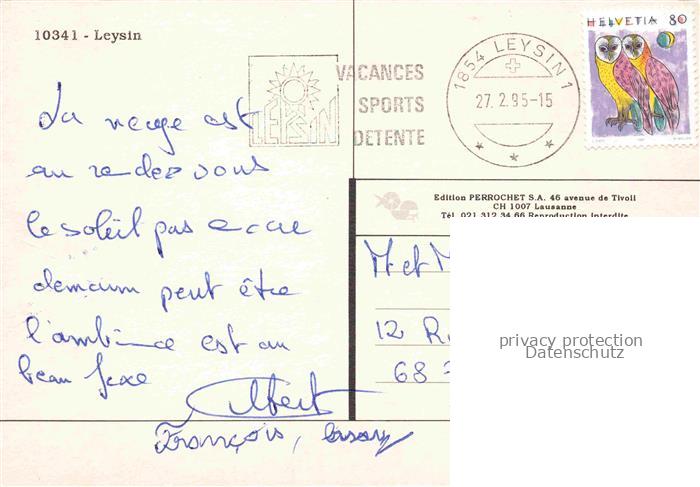 10341 - Leysin
HELVETIA 80
VACANCES
SPORTS
DETENTE
LEYSIN
1854 LEYSIN 1
27.2.95-15
La neige est
au rendez vous
le soleil pas encore
demain peut être
l'ambiance est au
beau fixe
Albert
François,
Edition PERROCHET S.A. 46 avenue de Tivoli
CH 1007 Lausanne
Tél. 021 312 34 66 Reproduction interdite
M et M
12 R
68
privacy protection
Datenschutz